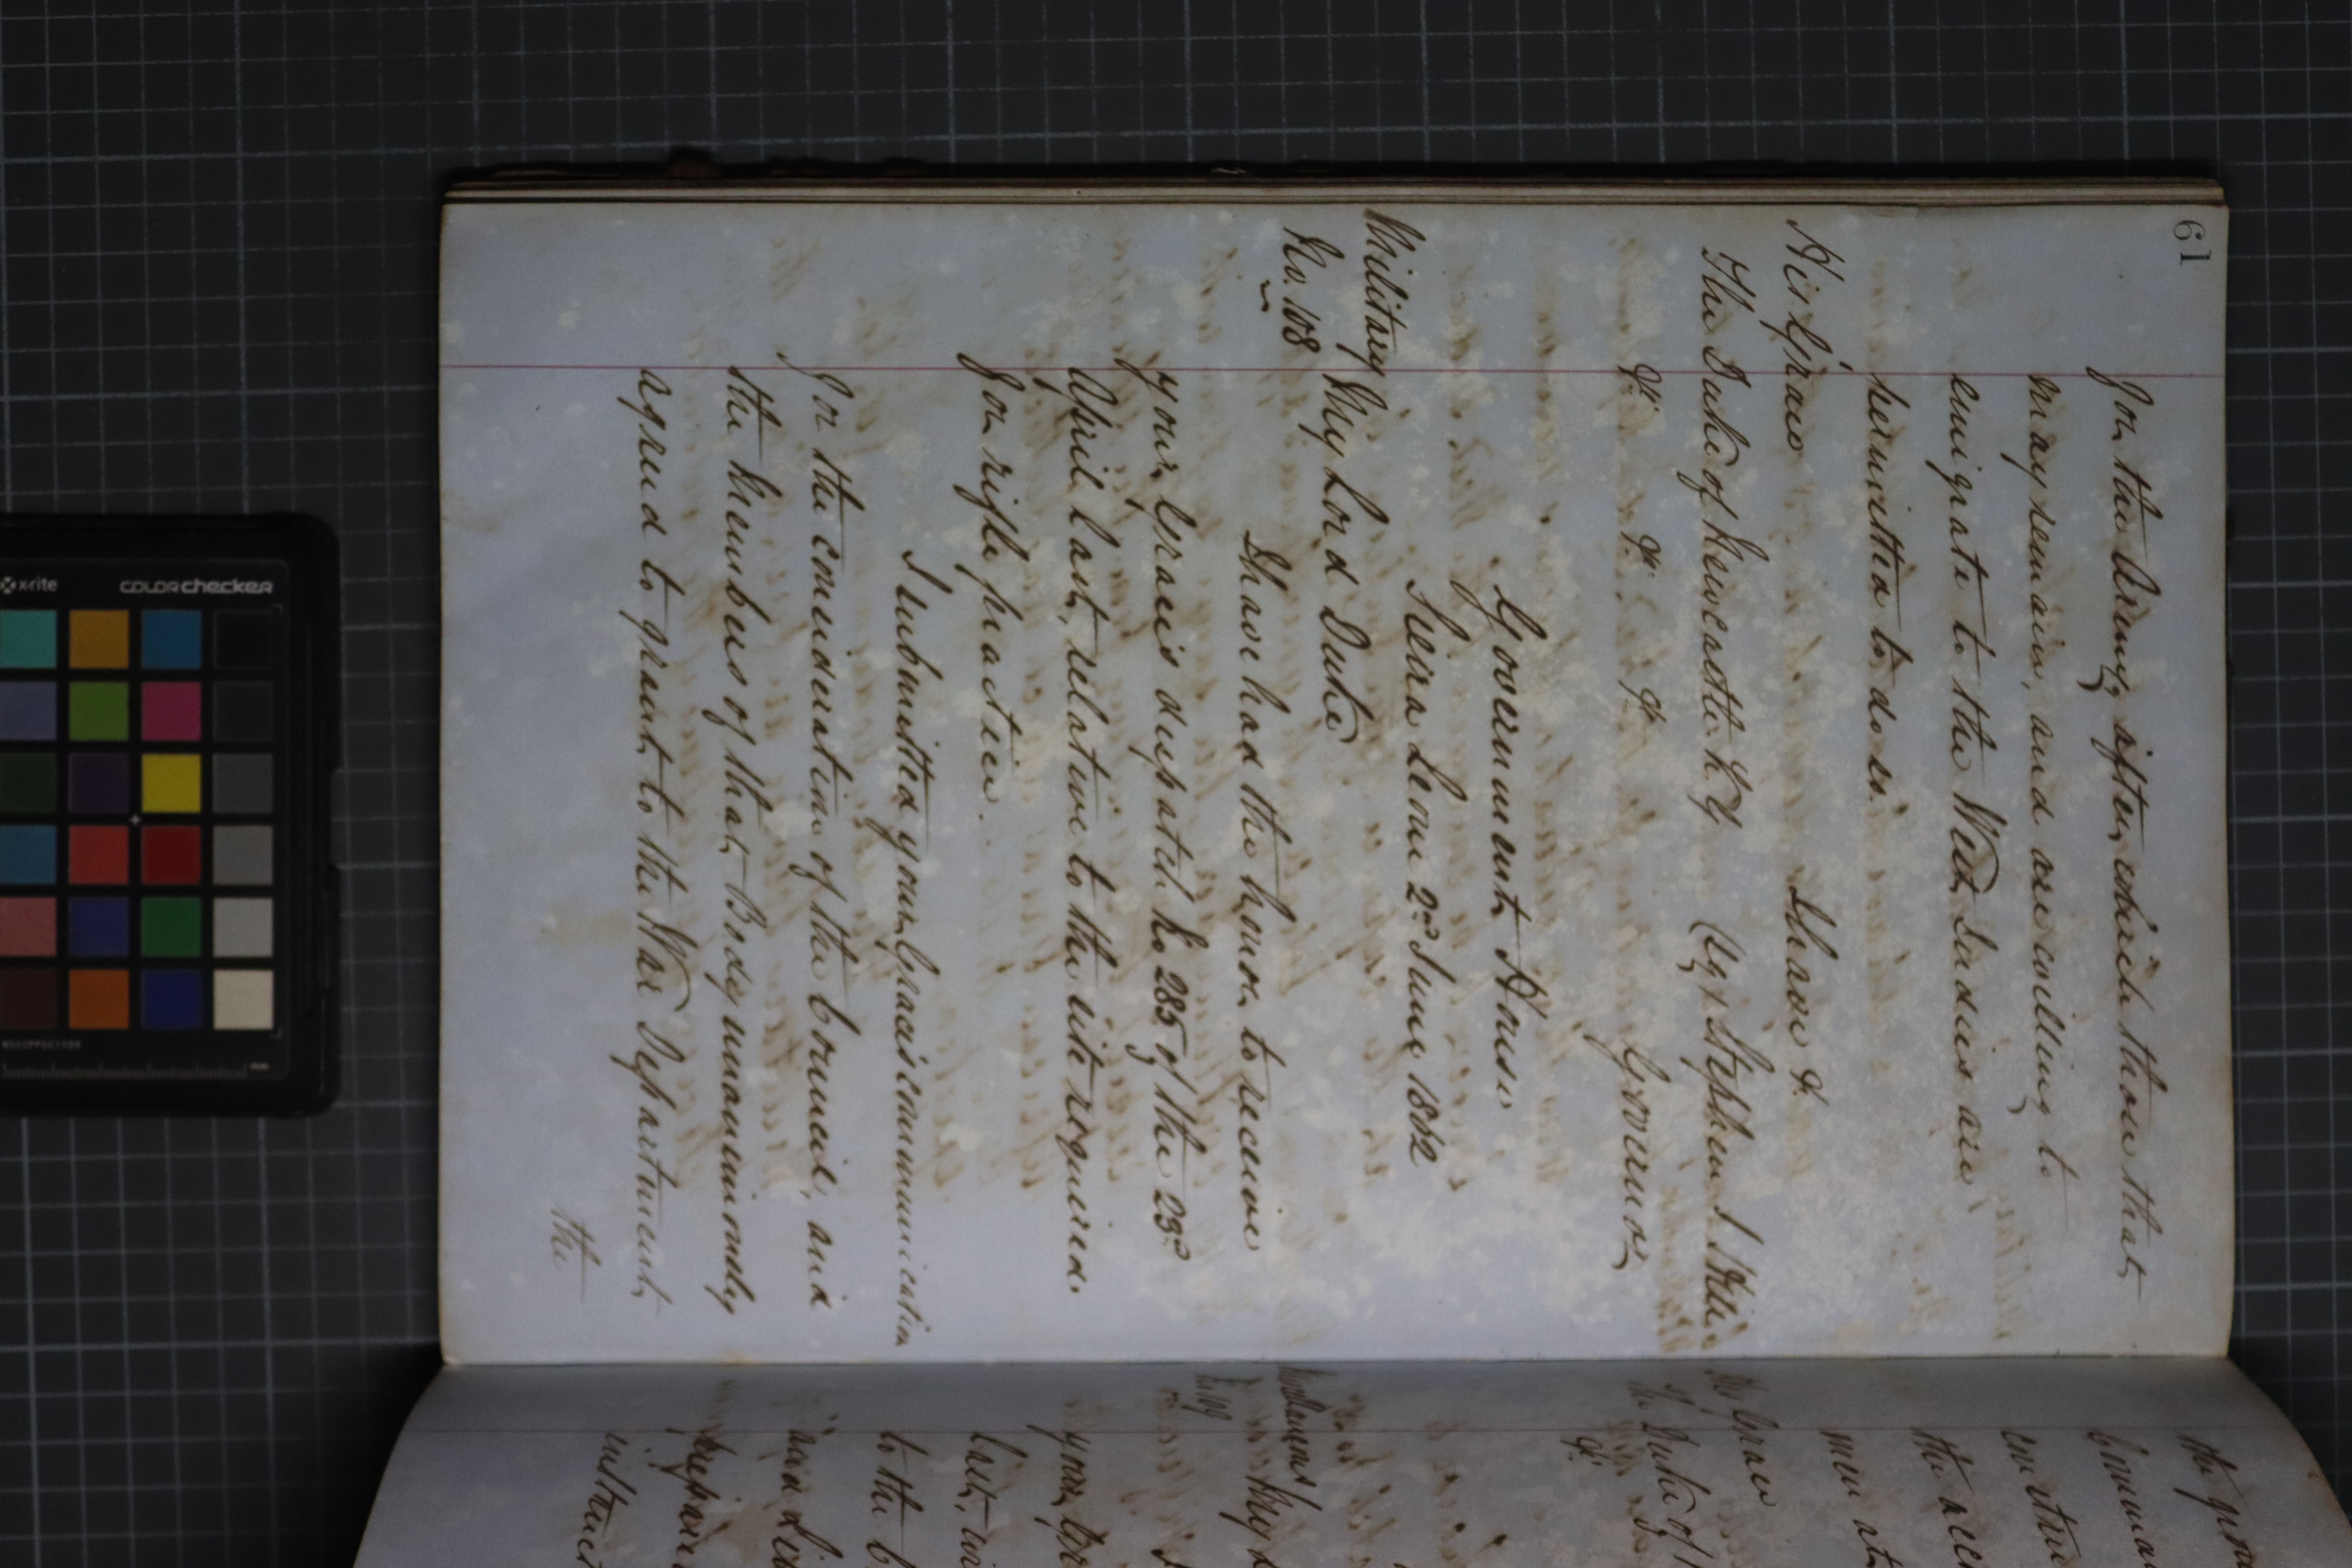 61
for the Army, after which those that
may remain, and are willing to
emigrate to the West Indies are
permitted to do so.
I have &c.
His Grace
The Duke of Newcastle K.G (Sg) Stephen J Hill
&c. &c. &c. Governor
Government House
Sierra Leone 2nd June 1862
Military
No. 108
My Lord Duke
I have had the honor to receive
your Grace's despatch No 285 of the 23rd
April last, relative to the site required
for rifle practice.
I submitted your Grace's communication
for the consideration of the Council, and
the Members of that Body unanimously
agreed to grant to the War Department,
the
the
His Grace
The Duke of
&c.
My
your
last,
to the
and
x-rite
colorchecker